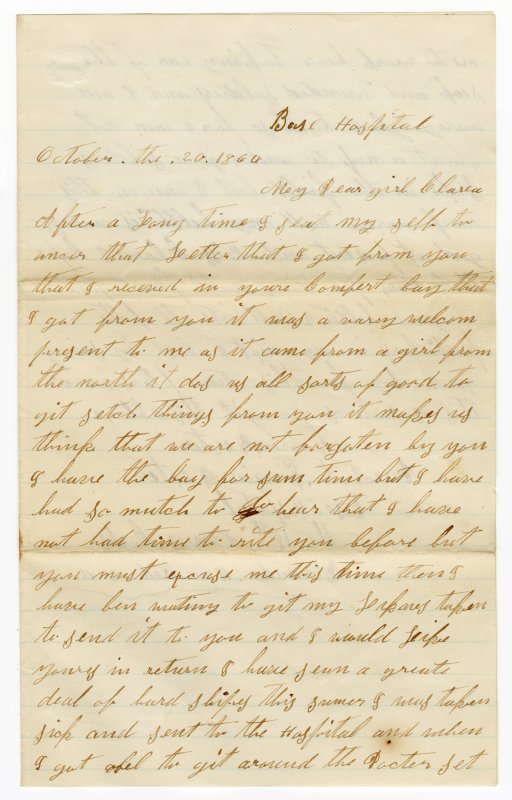 Base Hospital
October. the. 20. 1864
My Dear girl Clarea
After a Long time I seat my self to
ancer that Letter that I got from you
that I receved in youre Comfert bag that
I got from you it was a varry welcom
present to me as it came from a girl from
the north it dos us all sorts of good to
git setch things from you it makes us
think that we are not forgoten by you
I have the bag for sum time but I have
had so mutch to do hear that I have
not had time to rite you before but
you must excuse me this time then I
have ben wating to git my Liknes taken
to send it to you and I would like
youres in return I have sean a greate
deal of hard ships this sumer I was taken
sick and sent to the Hospital and when
I got abel to git around the Docter set